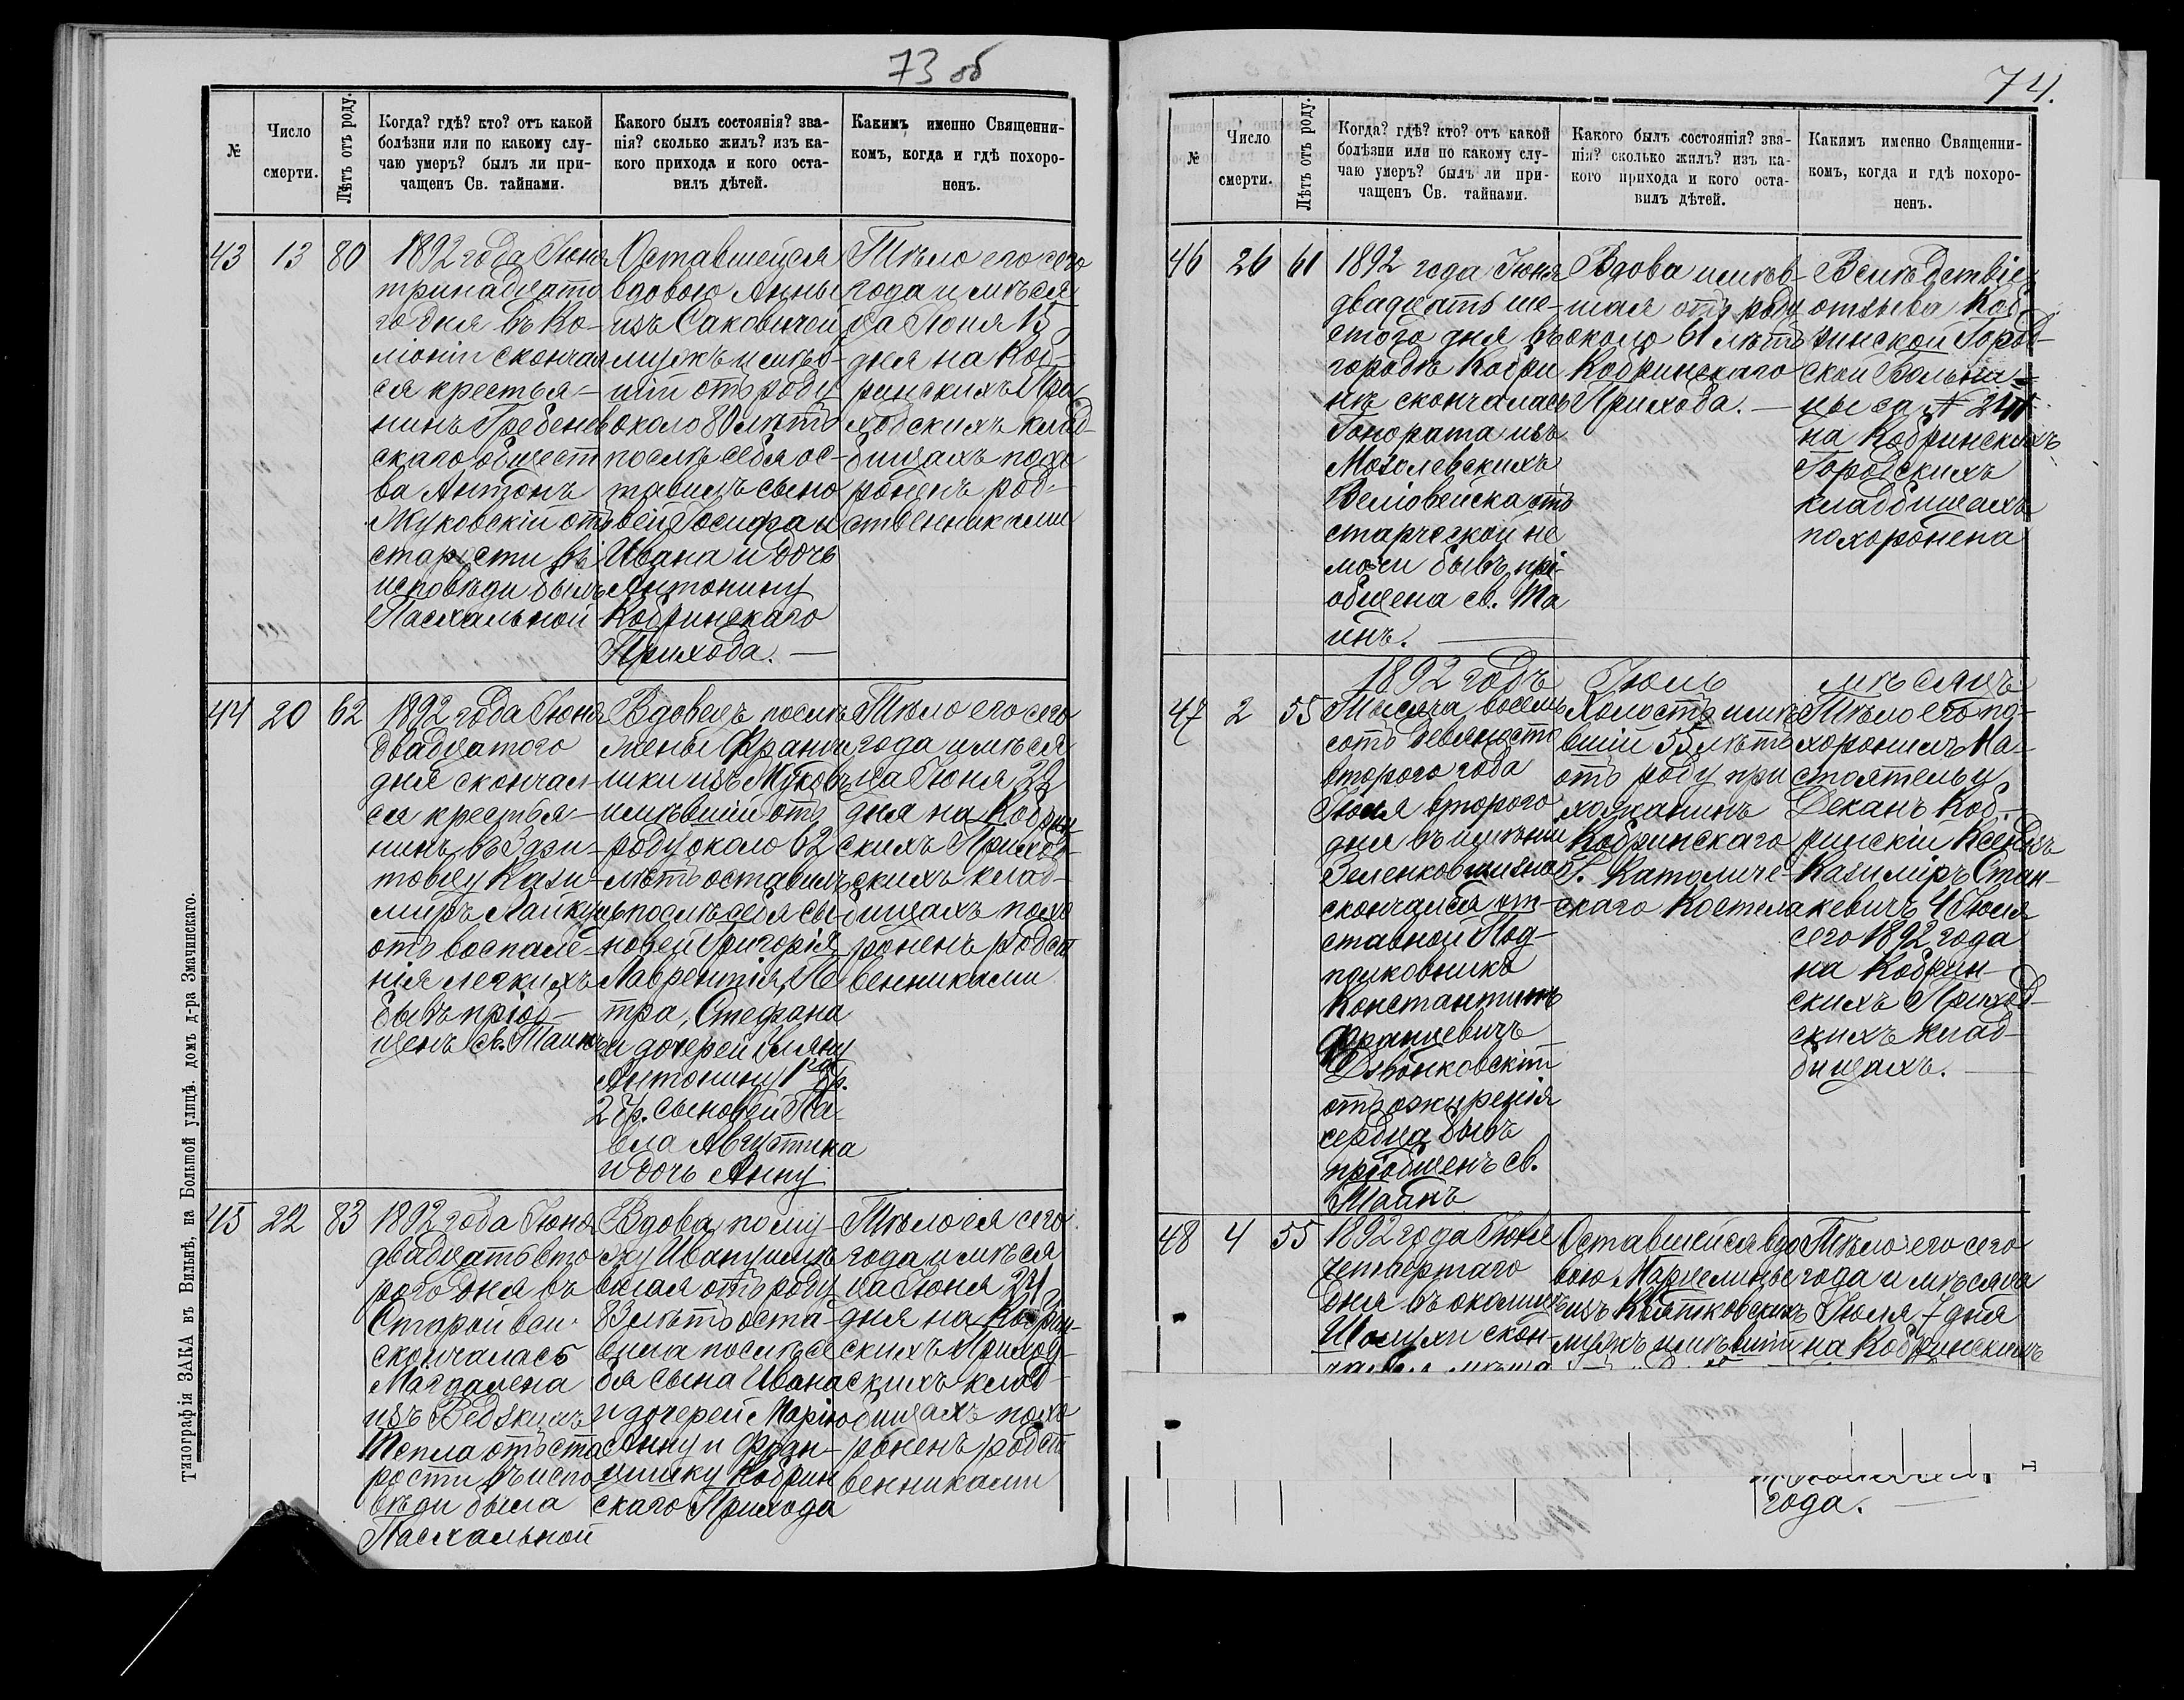 73 об
№
Число
смерти.
Лѣтъ отъ роду.
Когда? гдѣ? кто? отъ какой
болѣзни или по какому слу-
чаю умеръ? былъ ли при-
чащенъ Св. тайнами.
Какого былъ состоянія? зва-
нія? сколько жилъ? изъ ка-
кого прихода и кого оста-
вилъ дѣтей.
Какимъ именно Священни-
комъ, когда и гдѣ похоро-
ненъ.
43
13
80
1892 года Іюня
тринадцато
го дня въ Ко-
лоніи скончал
ся крестья-
нинъ Гребенев
скаго общест
ва Антонъ
Жуковскій отъ
старости въ
исповѣди былъ
Пасхальной
Оставшейся
вдовою Анны
изъ Саковичей
мужъ имѣв-
шій отъ роду
около 80 лѣтъ
послѣ себя ос-
тавилъ сыно
вей Іосифа и
Ивана и дочь
Антонину
Кобринскаго
Прихода. —
Тѣло его сего
года и мѣся
ца Іюня 15
дня на Коб-
ринскихъ При
ходскихъ клад-
бищахъ похо
роненъ род-
ственниками
44
20
62
1892 года Іюня
двадцатого
дня скончал-
ся крестья-
нинъ въ Зази-
товцу Кази-
миръ Лайкуць
отъ воспале-
нія легкихъ
бывъ пріоб-
щенъ св. Таинъ
Вдовецъ послѣ
жены Франци
шки изъ Жуковъ
имѣвшій отъ
роду около 62
лѣтъ оставилъ
послѣ себя сы
новей Григорія
Лаврентія, Пе
тра, Стефана
и дочерей Уляну
Антонину 1го бр.
2 бр. сыновей Па-
вла Августина
и дочь Анну
Тѣло его сего
года и мѣся
ца Іюня 22
дня на Кобрин-
скихъ Приход-
скихъ клад-
бищахъ похо
роненъ родст
венниками
45
22
83
1892 года Іюня
двадцать вто
рого дня въ
Старой вси
скончалась
Магдалена
изъ
Тепла отъ ста
рости въ испо
вѣди была
Пасхальной
Вдова по му-
жу Ивану имѣ
вшая отъ роду
83 лѣтъ оста-
вила послѣ се
бя сына Ивана
и дочерей Марію
Анну и Фран-
цишку Кобрин
скаго Прихода
Тѣло ея сего
года и мѣся
ца Іюня 24
дня на Кобрин-
скихъ Приход-
скихъ клад-
бищахъ похо
роненъ родст
венниками
Типографія ЗАКА въ Вильнѣ, на Большой улицѣ. домъ д-ра Змачинскаго.
74.
№
Число
смерти.
Лѣтъ отъ роду.
Когда? гдѣ? кто? отъ какой
болѣзни или по какому слу-
чаю умеръ? былъ ли при-
чащенъ Св. тайнами.
Какого былъ состоянія? зва-
нія? сколько жилъ? изъ ка-
кого прихода и кого оста-
вилъ дѣтей.
Какимъ именно Священни-
комъ, когда и гдѣ похоро-
ненъ.
46
26
61
1892 года Іюня
двадцать ше-
стого дня въ
городѣ Кобри
нѣ скончалась
Гонората изъ
Моголевскихъ
Веліовейска отъ
старческой не
мочи бывъ прі-
общена св. Та
инъ. —
Вдова имѣв-
шая отъ роду
около 61 лѣтъ
Кобринскаго
Прихода. —
Вслѣдствіе
отзыва Коб
ринской Город-
ской Больни-
цы за №
на Кобринскихъ
Городскихъ
кладбищахъ
похоронена
1892 годъ Іюль мѣсяцъ
47
2
55
Тысяча восемь
сотъ девяносто
второго года
Іюля второго
дня въ имѣніи
Зеленковщизна
скончался от-
ставной Под-
полковникъ
Константинъ
Францевичъ
Дзвонковскій
отъ ожиренія
сердца бывъ
пріобщенъ св.
Таинъ
Холостъ имѣ
вшій 55 лѣтъ
отъ роду при
хожанинъ
Кобринскаго
Р. Католиче-
скаго Костела
Тѣло его по-
хоронилъ На-
стоятель у
Деканъ Коб-
ринскій Ксендзъ
Казиміръ Стан-
кевичъ 4 Іюля
сего 1892 года
на Кобрин-
скихъ Приход-
скихъ клад-
бищахъ. —
48
4
55
1892 года Іюля
четвертаго
дня въ околицѣ
Шолухи скон-
Оставшейся вдо
вою Марцелины
изъ Квятковскихъ
мужъ имѣвшій
Тѣло его сего
года и мѣсяца
Іюля 7 дня
на Кобринскихъ
года. —